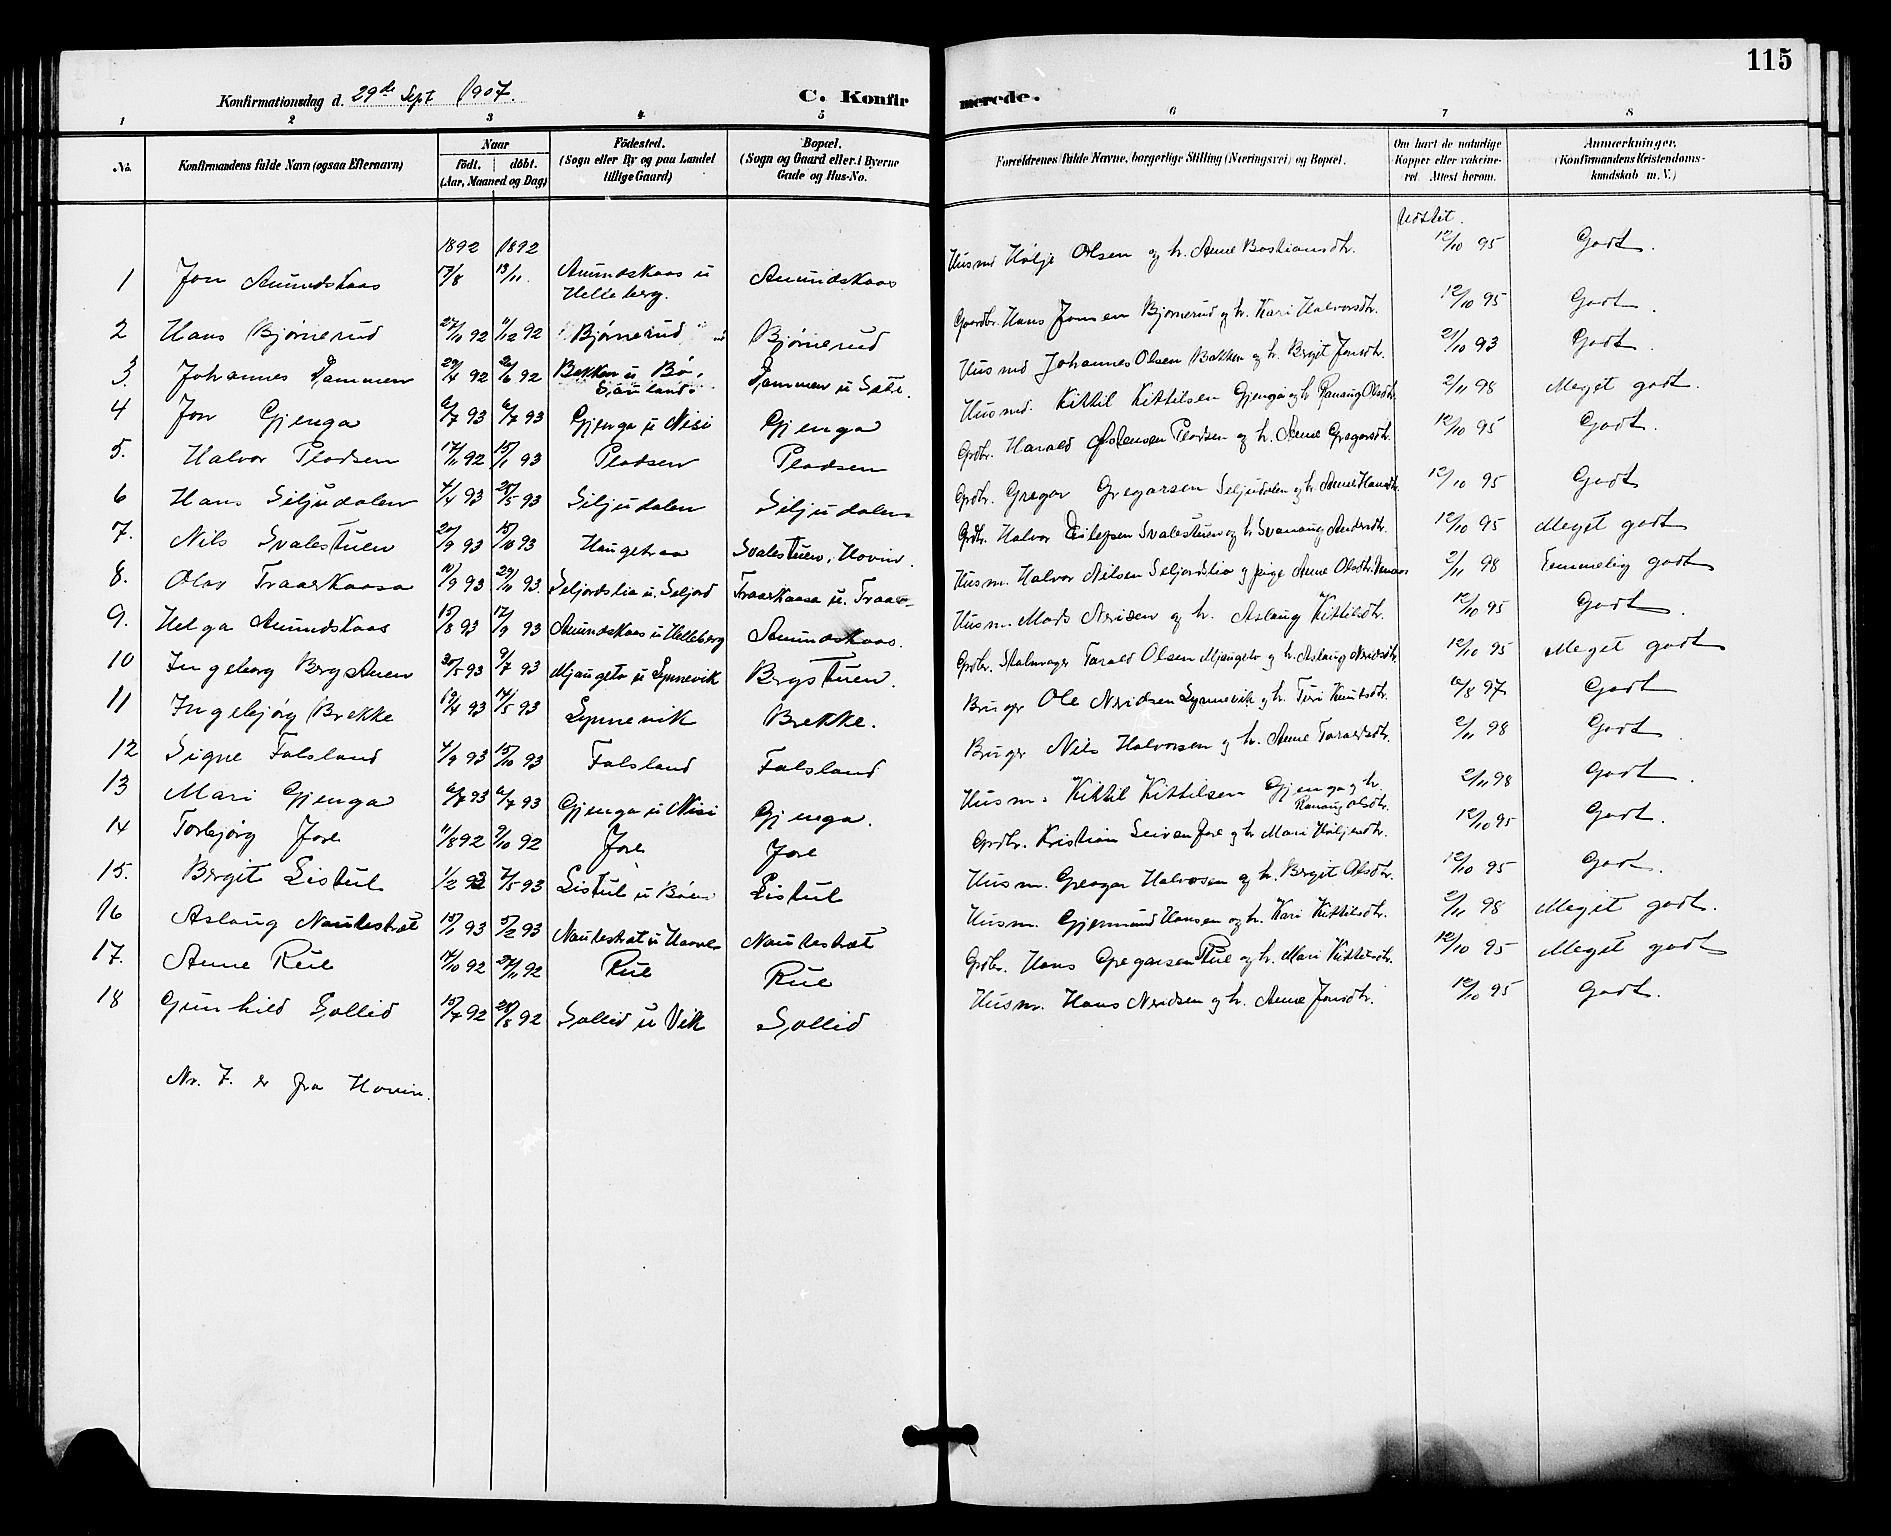 115
Konfirmationsdag d. 29de Sept 1907.
C. Konfirmerede.
1 2 3 4 5 6 7 8
No. Konfirmandens fulde Navn (ogsaa Efternavn) Naar født. døbt. (Aar, Maaned og Dag) Födested. (Sogn eller By og paa Landet tillige Gaard) Bopæl. (Sogn og Gaard eller i Byerne Gade og Hus-No. Forældrenes fulde Navne, borgerlige Stilling (Næringsvei) og Bopæl. Om havt de naturlige Kopper eller vakcineret. Attest herom. Anmærkninger. (Konfirmandens Kristendomskundskab m. V.)
1 Jon Amundskaas 1892 17/8 1892 13/11. Amundskaas u Helleberg. Amundskaas Husmd Hølje Olsen og h. Anne Bastiansdtr. 12/10 95 Godt.
2 Hans Bjørnerud 27/10 92 11/12 92 Bjørnerud Bjørnerud Gaardbr. Hans Jonsen Bjørnerud og h. Kari Halvorsdtr. 12/10 95 Godt.
3. Johannes Dammen 29/4 92 26/6 92 Bakken u Bø, Sauland. Dammen u Husmd Johannes Olsen Bakken og h. Bergit Jonsdtr. 21/10 93 Godt.
4 Jon Gjenga 6/7 93 6/7 93 Gjenga u Nisi Gjenga Husmd. Kittil Kittilsen Gjenga og h Ranaug Olsdtr. 2/11 98 Meget godt.
5. Halvor Pladsen 17/11 92 15/1 93 Pladsen Pladsen Grdbr. Harald Østensen Pladsen og h. Anne Gregarsdtr. 12/10 95 Godt.
6 Hans Siljudalen 4/4 93 28/5 93 Siljudalen Siljudalen Grdbr. Gregar Gregarsen Seljudalen og h. Anne Hansdtr. 12/10 95 Godt
7. Nils Svalestuen 20/9 93 15/10 93 Haugetraa Svalestuen, Hovin. Grdbr. Halvor Svalestuen og h Svanaug Andersdtr. 12/10 95 Meget godt
8. Olav Traarkaasa 10/9 93 29/11 93. Seljordslia u. Seljord Traarkaasa u. Traar Husm. Halvor Nilsen Seljordslia og pige Anne Olsdtr. 2/11 98 Temmelig godt
9. Helga Amundskaas 15/8 93 17/9 93 Amundskaas u Helleberg Amundskaas. Husm. Mads Nerisen og h. Aslaug Kittilsdtr. 12/10 95 Godt.
10 Ingeborg Bergstuen 20/5 93 9/7 93 Mjaugeto u Synnevik Bergstuen. Grdbr. Skolmager Tarald Olsen Mjaugeto og h. Aslaug Nerisdtr. 12/10 95 Meget godt
11 Ingebjørg Brekke 19/4 93 14/5 93 Synnevik Brekke. Bruger Ole Neridsen Synnevik og h. Turi Knutsdtr. 10/8 97 Godt
12 Signe Falsland 4/9 93 15/10 93 Falsland Falsland Bruger Nils Halvorsen og h. Anne Taraldsdtr. 2/11 98 Godt.
13 Mari Gjenga 6/7 93 6/7 93 Gjenga u Nisi Gjenga. Husm. Kittil Kittilsen Gjenga og h. Ranaug Olsdtr. 2/11 98 Godt.
14 Torbjørg Jore 11/8 92 9/10 92 Jore Jore Grdbr. Kristian Jore og h Mari Høljesdtr. 12/10 95 Godt.
15. Bergit Listul 1/2 93 7/5 93 Listul u Listul Husm. Gregar Halvorsen og h. Bergit Olsdtr. 12/10 95 Godt.
16 Aslaug Nautestræt 15/1 93 5/2 93 Nautestræt u Nautestræt Husm. Gjermund Hansen og h. Kari Kittilsdtr. 2/11 98 Meget godt.
17. Anne Rue 14/10 92 27/11 92 Rue Rue Grdbr. Hans Gregarsen Rue og h. Mari Kittilsdtr. 12/10 95 Meget godt
18 Gunhild Sollid 15/7 92 28/8 92 Sollid u Vik Sollid Husm. Hans Neridsen og h. Anne Jonsdtr. 12/10 95 Godt.
Nr. 7. er fra Hovin.